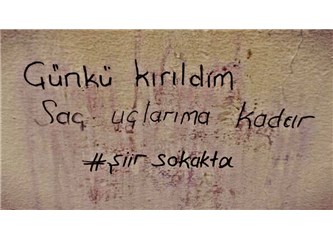 Günkü kırıldım
Saç uçlarıma kadar
#şiir sokakta